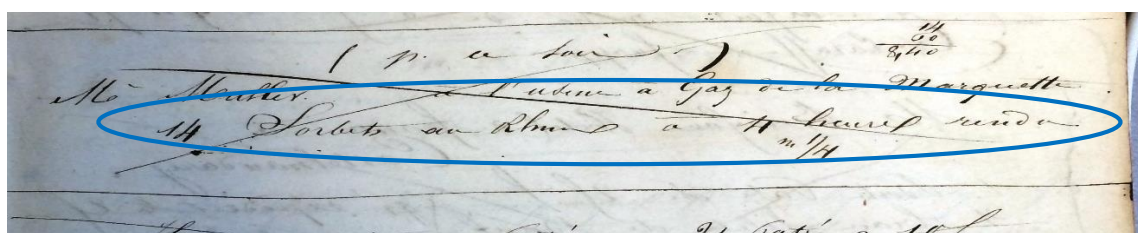 ( p. ce soir )
14
60
8,40
Mr Muller. à l'usine à Gaz de la Marquette.
14 Sorbets au Rhum à 4 heures rendu
m 1/4